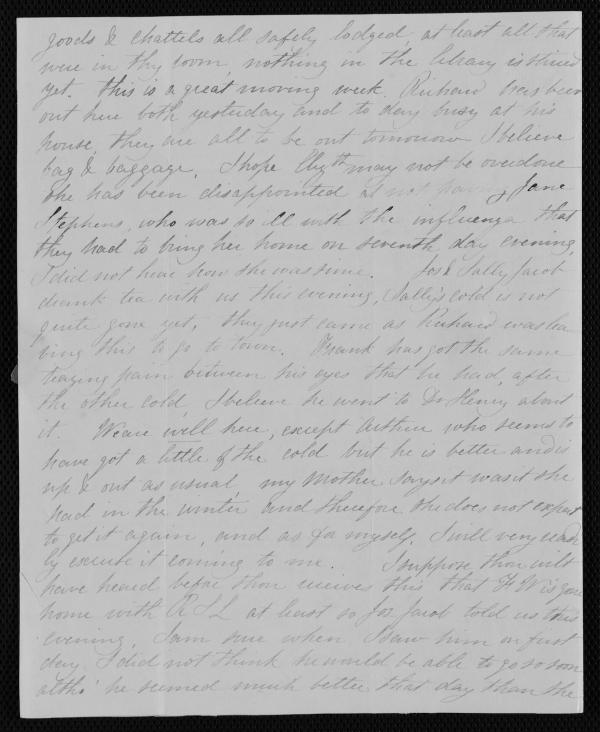 goods & chattels all safely lodged, at least all that
were in thy room, nothing in the library is stirred
yet. this is a great moving week. Richard has been
out here both yesterday and to day busy at his
house, they are all to be out tomorrow I believe
bag & baggage, I hope Elizth may not be overdone
she has been disappointed at not having Jane
Stephens, who was so ill with the influenza that
they had to bring her home on seventh day evening,
I did not hear how she was since. Jos & Sally Jacob
drank tea with us this evening, Sally's cold is not
quite gone yet, they just came as Richard was lea
ving this to go to town. Frank has got the same
teazing pain between his eyes that he had, after
the other cold, I believe he went to Dr Henry about
it. We are well here, except Arthur who seems to
have got a little of the cold but he is better and is
up & out as usual my Mother says it was it she
had in the winter and therefore she does not expect
to get it again, and as for myself, I will very readi
ly excuse it coming to me. I suppose thou wilt
have heard before thou receives this that W is gone
home with R S L at least so Jos Jacob told us this
evening, I am sure when I saw him on first
day I did not think he would be able to go so soon
altho' he seemed much better that day than the